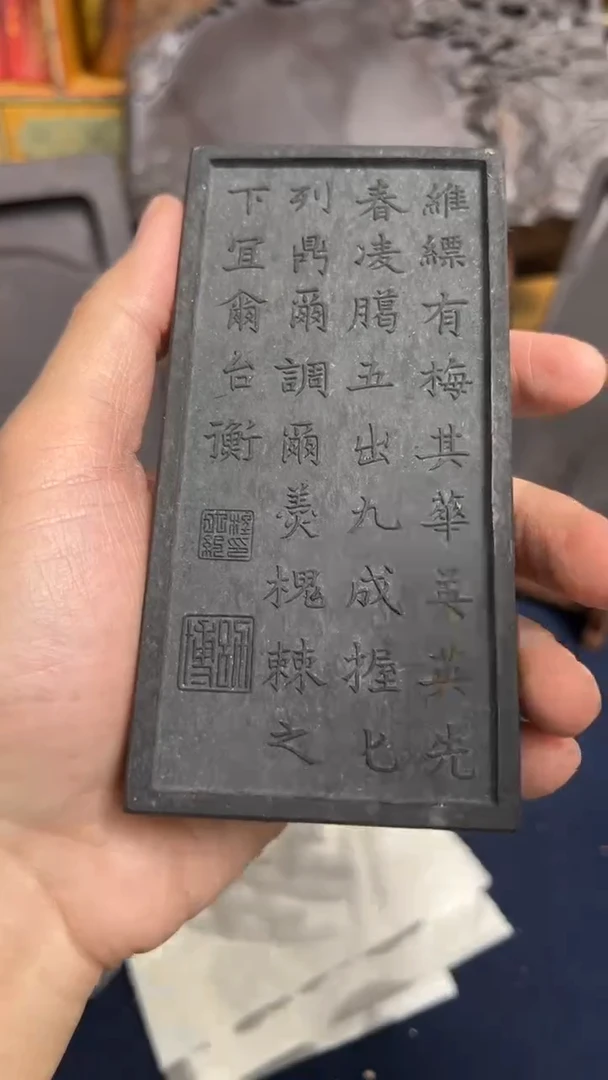 維縹有梅其華英英先
春凌臈五出九成握匕
列鼎爾調爾羹槐棘之
下宜爾台衡
程印
師博